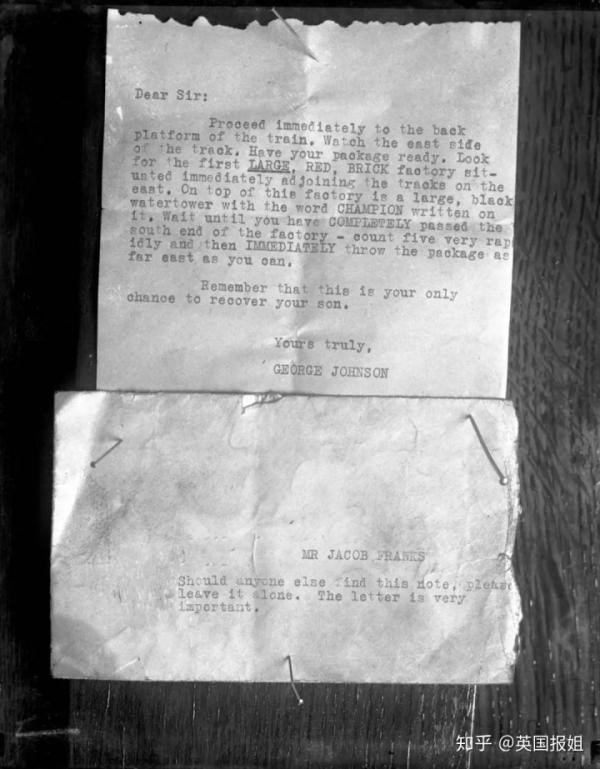 Dear Sir:
Proceed immediately to the back
platform of the train. Watch the east side
of the track. Have your package ready. Look
for the first LARGE, RED, BRICK factory sit-
uated immediately adjoining the tracks on the
east. On top of this factory is a large, black
watertower with the word CHAMPION written on
it. Wait until you have COMPLETELY passed the
south end of the factory - count five very rap
idly and then IMMEDIATELY throw the package as
far east as you can.
Remember that this is your only
chance to recover your son.
Yours truly,
GEORGE JOHNSON
MR JACOB FRANKS
Should anyone else find this note, please
leave it alone. The letter is very
important.
知乎 @英国报姐